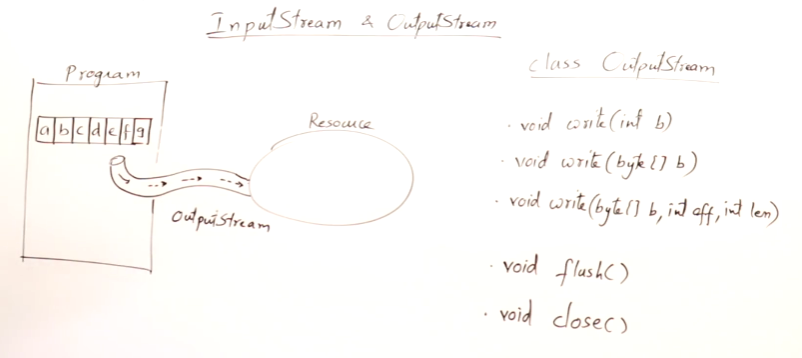 InputStream & OutputStream
Program
a b c d e f g
OutputStream
Resource
class OutputStream
· void write(int b)
· void write(byte[] b)
· void write(byte[] b, int off, int len)
· void flush()
· void close()